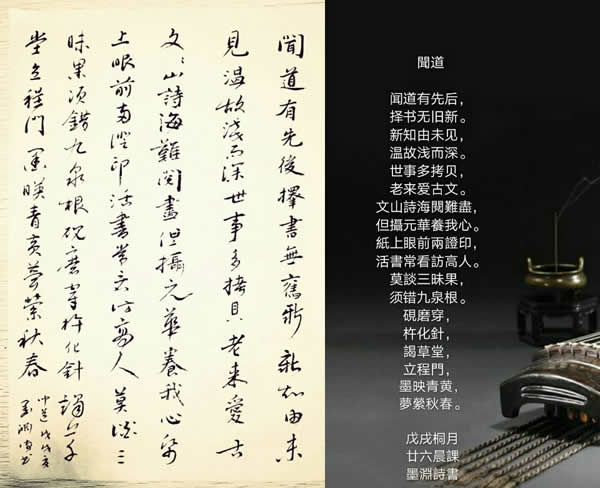 聞道有先後擇書無舊新新知由未
見温故淺而深世事多拷貝老來愛古
文〻山詩海難閱盡但攝元華養我心紙
上眼前両證印活書常看访高人莫談三
昧果须錯九泉根硯磨穿杵化針謁草
堂立程門墨暎青黄夢縈秋春
聞道
闻道有先后，
择书无旧新。
新知由未见，
温故浅而深。
世事多拷贝，
老来爱古文。
文山詩海閱難盡，
但攝元華養我心。
紙上眼前兩證印，
活書常看訪高人。
莫談三昧果，
须错九泉根。
硯磨穿，
杵化針，
謁草堂，
立程門，
墨映青黄，
夢縈秋春。
戊戌桐月
廿六晨課
墨淵詩書